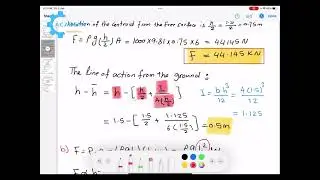 location of the centroid from the free surface is h/2 = 1.5/2 = 0.75m
F = ρg(h/2)A = 1000×9.81×0.75×6 = 44145 N
F = 44.145 KN
The line of action from the ground:
h - h̄ = h - [h/2 + I/A(h/2)] I = bh³/12 = 4(1.5)³/12
= 1.5 - [1.5/2 + 1.125/6(1.5/2)] = 0.5m = 1.125
b)